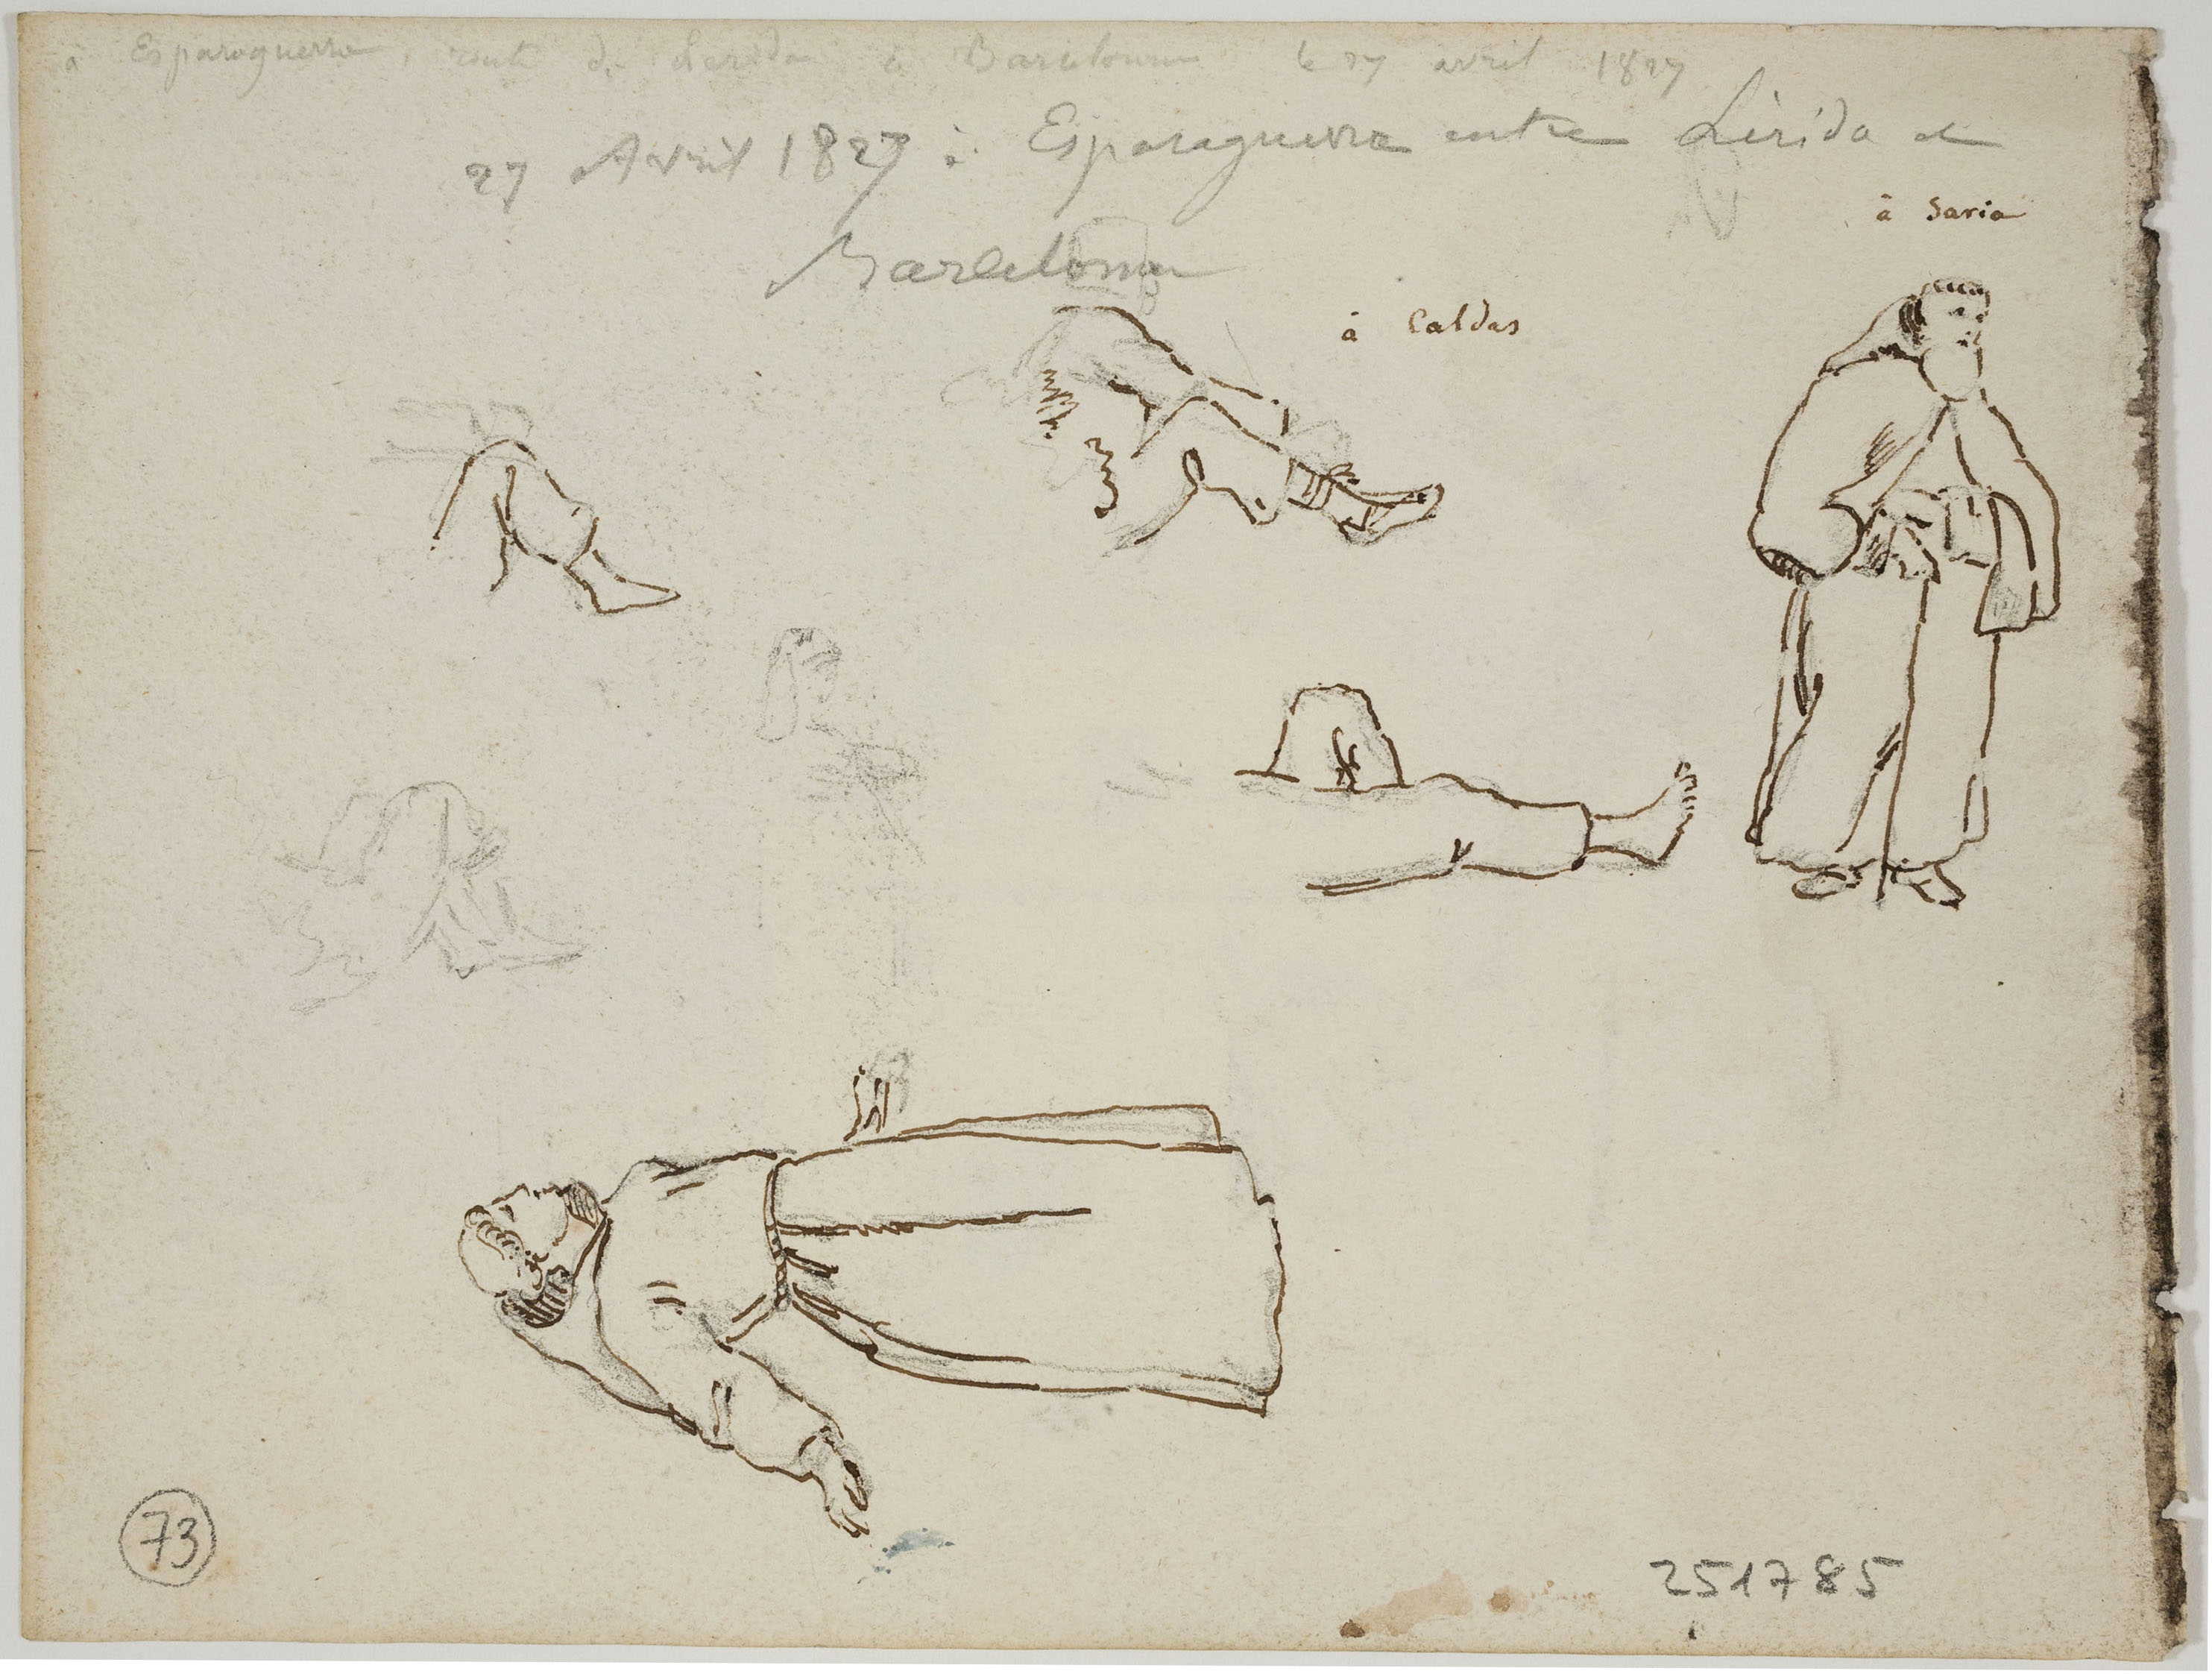 à Esparaguerra, route de Lerida à Barcelonne le 27 avril 1827
27 Avril 1827 à Esparaguerra entre Lérida et
Barcelona
à Saria
à Caldas
73
251785